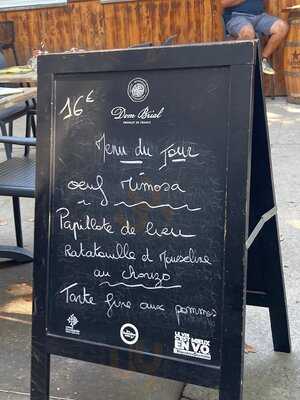 16€
Dom Brial
Menu du Jour
oeuf Mimosa
Papillote de lieu
Ratatouille et Mousseline
au chorizo
Tarte fine aux pommes
LE VIN
C'EST MIEUX
EN V.O